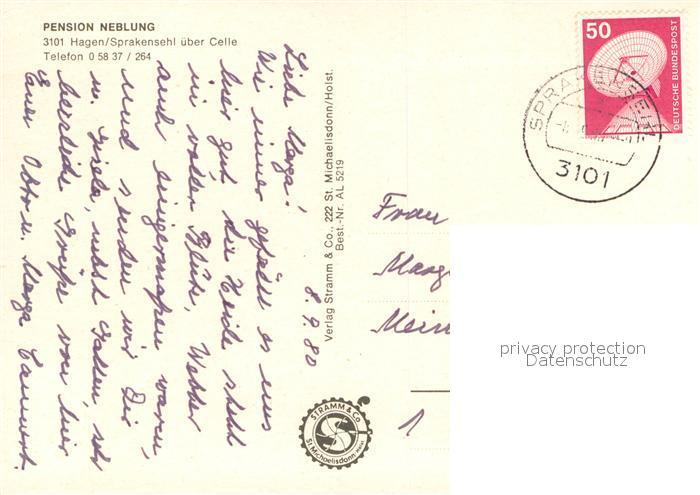 PENSION NEBLUNG
3101 Hagen/Sprakensehl über Celle
Telefon 0 58 37 / 264
8.9.80
Liebe Marga!
Wie immer gefällt es uns
hier gut. Die Heide steht
in voller Blüte, Wetter
auch einigermaßen warm,
und senden wir Dir
u. Gisela, nebst Gatten, sehr
herzliche Grüße von hier
Euer Otto u. Marga
Verlag Stramm & Co., 222 St. Michaelisdonn/Holst.
Best.-Nr. AL 5219
STRAMM & Co
St. Michaelisdonn
50
DEUTSCHE BUNDESPOST
SPRAKENSEHL
3101
Frau
Marg
Mein
1
privacy protection
Datenschutz